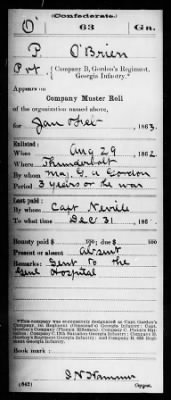 (Confederate.)
O 63 Ga.
P. O'Brien
Pvt., Company B, Gordon's Regiment,
Georgia Infantry.*
Appears on
Company Muster Roll
of the organization named above,
for Jan & Feb, 1863.
Enlisted:
When Aug 29, 1862.
Where Thunderbolt
By whom Maj. G. A. Gordon
Period 3 years or the war
Last paid:
By whom Capt Nevile
To what time Dec 31, 186
Bounty paid $ 100; due $ 100
Present or absent Absent
Remarks: Sent to the
Genl Hospital
*This company was successively designated as Capt. Gordon's
Company, 1st Regiment (Olmstead's) Georgia Infantry; Capt.
Company B, 63d Regiment Georgia Infantry.
Book mark:
(642)
Copyist.